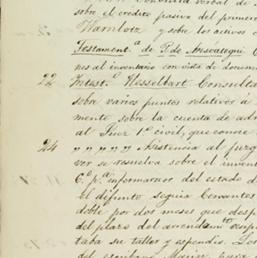 verbal de
sobre el crédito pasivo del primero
Warnlotz y sobre los activos
Testament.ª de J. de Ansoategui C
nes al inventario con vista de docume
22 Intest.º Hesselbart Consulta
sobre varios puntos relativos à
mente sobre la cuenta de adm
al Juez 1º civil, que conoce
24 " " " " " Asistencia al juzg
ver se resuelva sobre el inven
C.º p.ª informarse del estado d
El difunto seguia Cervantes
doble por dos meses que desp
del plazo del arrendamto
taba su taller y espendio. Lo
del escribano